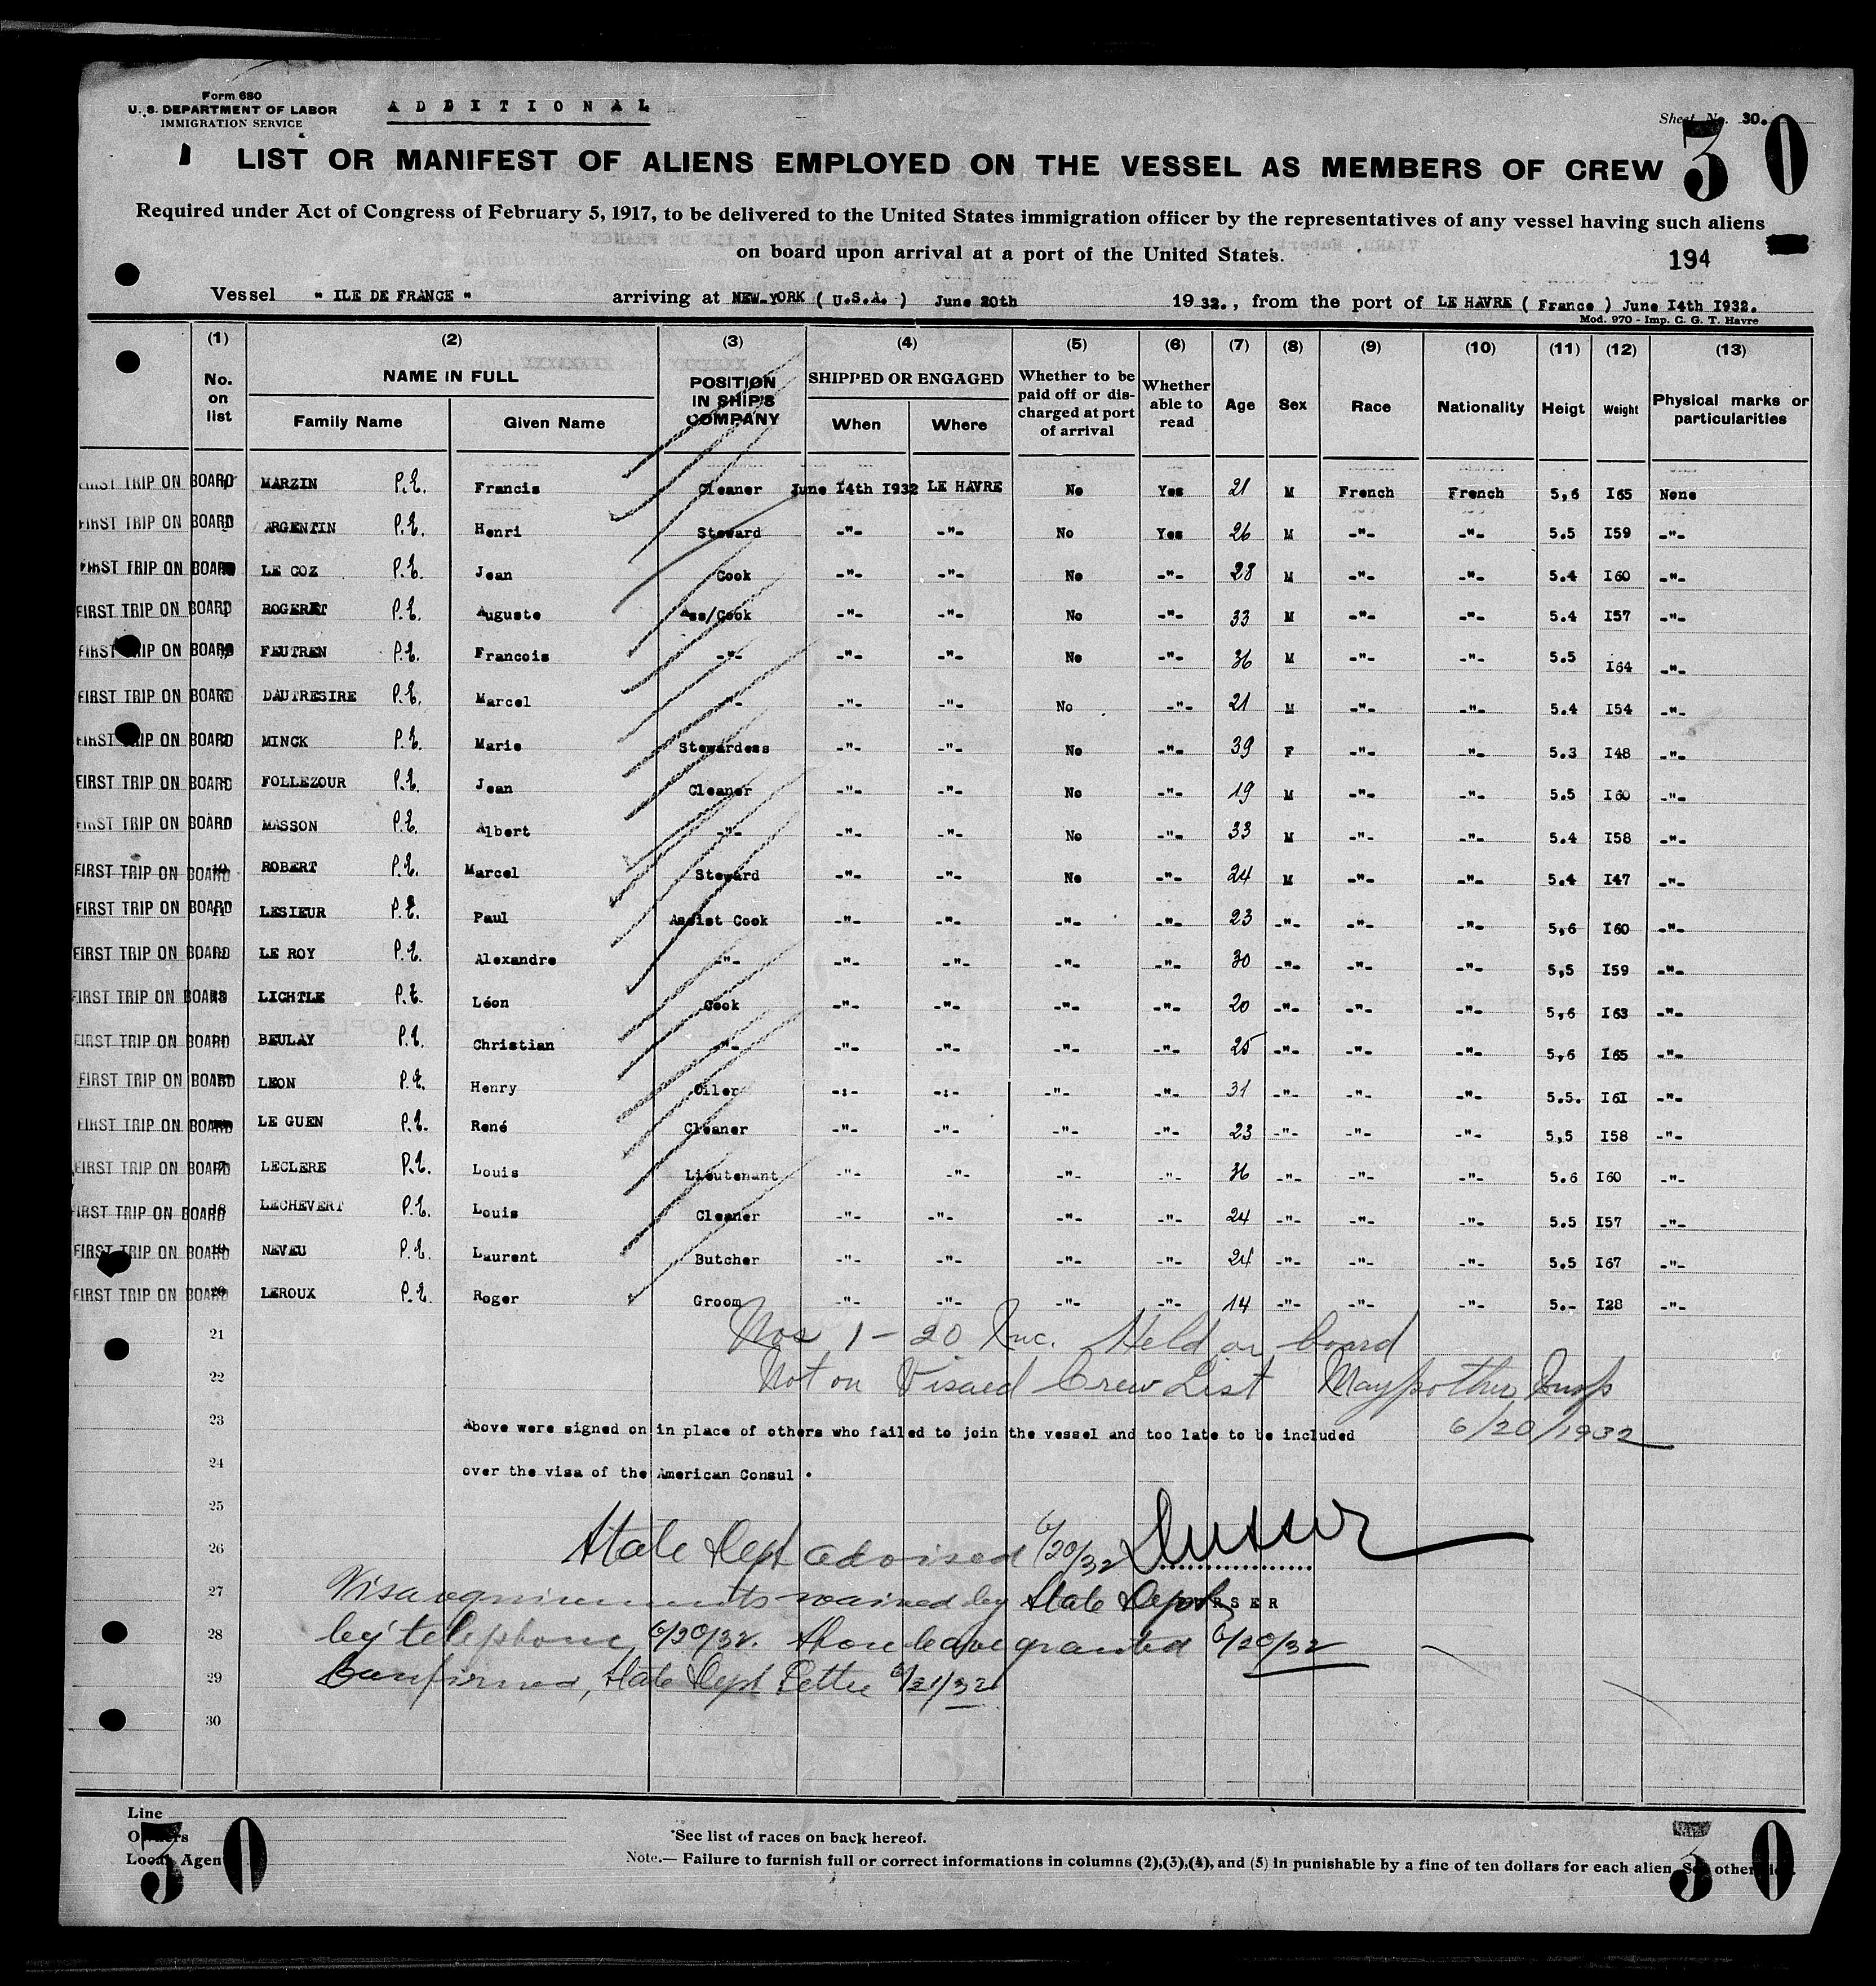 Form 680
U. S. DEPARTMENT OF LABOR
IMMIGRATION SERVICE
A D D I T I O N A L
Sheet No. 30.
30
LIST OR MANIFEST OF ALIENS EMPLOYED ON THE VESSEL AS MEMBERS OF CREW
Required under Act of Congress of February 5, 1917, to be delivered to the United States immigration officer by the representatives of any vessel having such aliens
on board upon arrival at a port of the United States.
194
Vessel " ILE DE FRANCE " arriving at NEW-YORK ( U.S.A. ) June 20th 1932., from the port of LE HAVRE ( France ) June I4th I932.
Mod. 970 - Imp. C. G. T. Havre
(1) (2) (3) (4) (5) (6) (7) (8) (9) (10) (11) (12) (13)
No. on list NAME IN FULL Family Name Given Name POSITION IN SHIP'S COMPANY SHIPPED OR ENGAGED When Where Whether to be paid off or discharged at port of arrival Whether able to read Age Sex Race Nationality Heigt Weight Physical marks or particularities
FIRST TRIP ON BOARD MARZIN P.E. Francis Cleaner June I4th I932 LE HAVRE No Yes 21 M French French 5,6 I65 None
FIRST TRIP ON BOARD ARGENTIN P.E. Henri Steward -"- -"- No Yes 26 M -"- -"- 5.5 I59 -"-
FIRST TRIP ON BOARD LE COZ P.E. Jean Cook -"- -"- No -"- 28 M -"- -"- 5.4 I60 -"-
FIRST TRIP ON BOARD ROGERET P.E. Auguste Ass/Cook -"- -"- No -"- 33 M -"- -"- 5.4 I57 -"-
FIRST TRIP ON BOARD FEUTREN P.E. Francois -"- -"- -"- No -"- 36 M -"- -"- 5.5 I64 -"-
FIRST TRIP ON BOARD DAUTRESIRE P.E. Marcel -"- -"- -"- No -"- 21 M -"- -"- 5.4 I54 -"-
FIRST TRIP ON BOARD MINCK P.E. Marie Stewardess -"- -"- No -"- 39 F -"- -"- 5.3 I48 -"-
FIRST TRIP ON BOARD FOLLEZOUR P.E. Jean Cleaner -"- -"- No -"- 19 M -"- -"- 5.5 I60 -"-
FIRST TRIP ON BOARD MASSON P.E. Albert -"- -"- -"- No -"- 33 M -"- -"- 5.4 I58 -"-
FIRST TRIP ON BOARD 10 ROBERT P.E. Marcel Steward -"- -"- No -"- 24 M -"- -"- 5.4 I47 -"-
FIRST TRIP ON BOARD 11 LESIEUR P.E. Paul Assist Cook -"- -"- -"- -"- 23 -"- -"- -"- 5,6 I60 -"-
FIRST TRIP ON BOARD LE ROY P.E. Alexandre -"- -"- -"- -"- -"- 30 -"- -"- -"- 5,5 I59 -"-
FIRST TRIP ON BOARD 13 LICHTLE P.E. Léon Cook -"- -"- -"- -"- 20 -"- -"- -"- 5,6 I63 -"-
FIRST TRIP ON BOARD BEULAY P.E. Christian -"- -"- -"- -"- -"- 25 -"- -"- -"- 5,6 I65 -"-
FIRST TRIP ON BOARD LEON P.E. Henry Oiler -:- -:- -"- -"- 31 -"- -"- -"- 5.5. I6I -"-
FIRST TRIP ON BOARD LE GUEN P.E. René Cleaner -"- -"- -"- -"- 23 -"- -"- -"- 5,5 I58 -"-
FIRST TRIP ON BOARD LECLERE P.E. Louis Lieutenant -"- -"- -"- -"- 36 -"- -"- -"- 5.6 I60 -"-
FIRST TRIP ON BOARD 18 LECHEVERT P.E. Louis Cleaner -"- -"- -"- -"- 24 -"- -"- -"- 5.5 I57 -"-
FIRST TRIP ON BOARD 19 NEVEU P.E. Laurent Butcher -"- -"- -"- -"- 24 -"- -"- -"- 5.5 I67 -"-
FIRST TRIP ON BOARD 20 LEROUX P.E. Roger Groom -"- -"- -"- -"- 14 -"- -"- -"- 5.- I28 -"-
21 Nos 1 - 20 Inc. Held on board
22 Not on Visaed Crew List Insp
23 Above were signed on in place of others who failed to join the vessel and too late to be included 6/20/1932
24 over the visa of the American Consul .
25
26 State Dept advised 6/20/32
27 Visa requirements waived by State Dept PURSER
28 by telephone 6/20/32. Shore leave granted 6/20/32
29 Confirmed, State Dept Letter 6/21/32
30
Line
Owners
Local Agent
30
*See list of races on back hereof.
Note.— Failure to furnish full or correct informations in columns (2),(3),(4), and (5) in punishable by a fine of ten dollars for each alien. See other side.
30